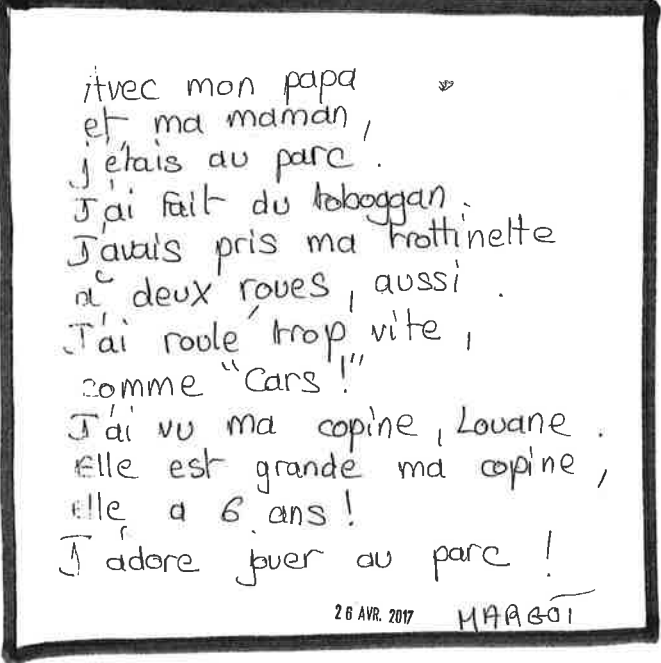 Avec mon papa
et ma maman,
j'étais au parc.
J'ai fait du toboggan.
J'avais pris ma trottinette
à deux roues, aussi.
J'ai roulé trop vite,
comme "Cars!"
J'ai vu ma copine, Louane.
Elle est grande ma copine,
elle a 6 ans!
J'adore jouer au parc!
26 AVR. 2017 MARGOT